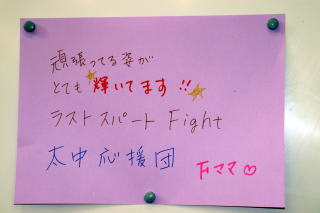 頑張ってる姿が
とても輝いてます!!
ラストスパート Fight
太中応援団
Fiママ♡